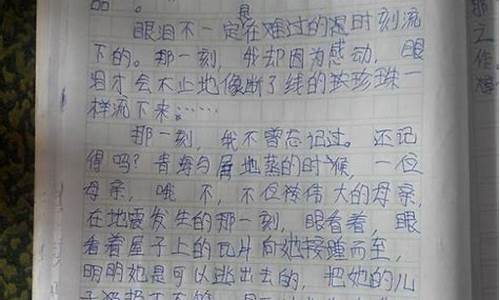 品。
眼泪不一定是在难过的时刻流
下的。那一刻，我却因为感动，眼
泪才会不止地像断了线的珍珠一
样流下来……
那一刻，我不曾忘记过。还记
得吗？青海
的时候，一位
母亲，哦，不，
伟大的母亲，
在地震发生的那一刻，眼看着，眼
看着屋子上的瓦片向她接踵而至，
明明她是可以逃出去的，把她的儿
工
作。